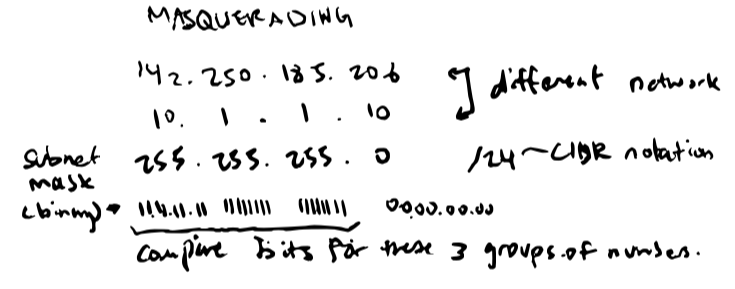 MASQUERADING
142.250.185.206 ] different network
10.1.1.10
subnet mask 255.255.255.0 /24 ~ CIDR notation
(binary) → 11.11.11.11 11111111 11111111 00.00.00.00
compare bits for these 3 groups of numbers.